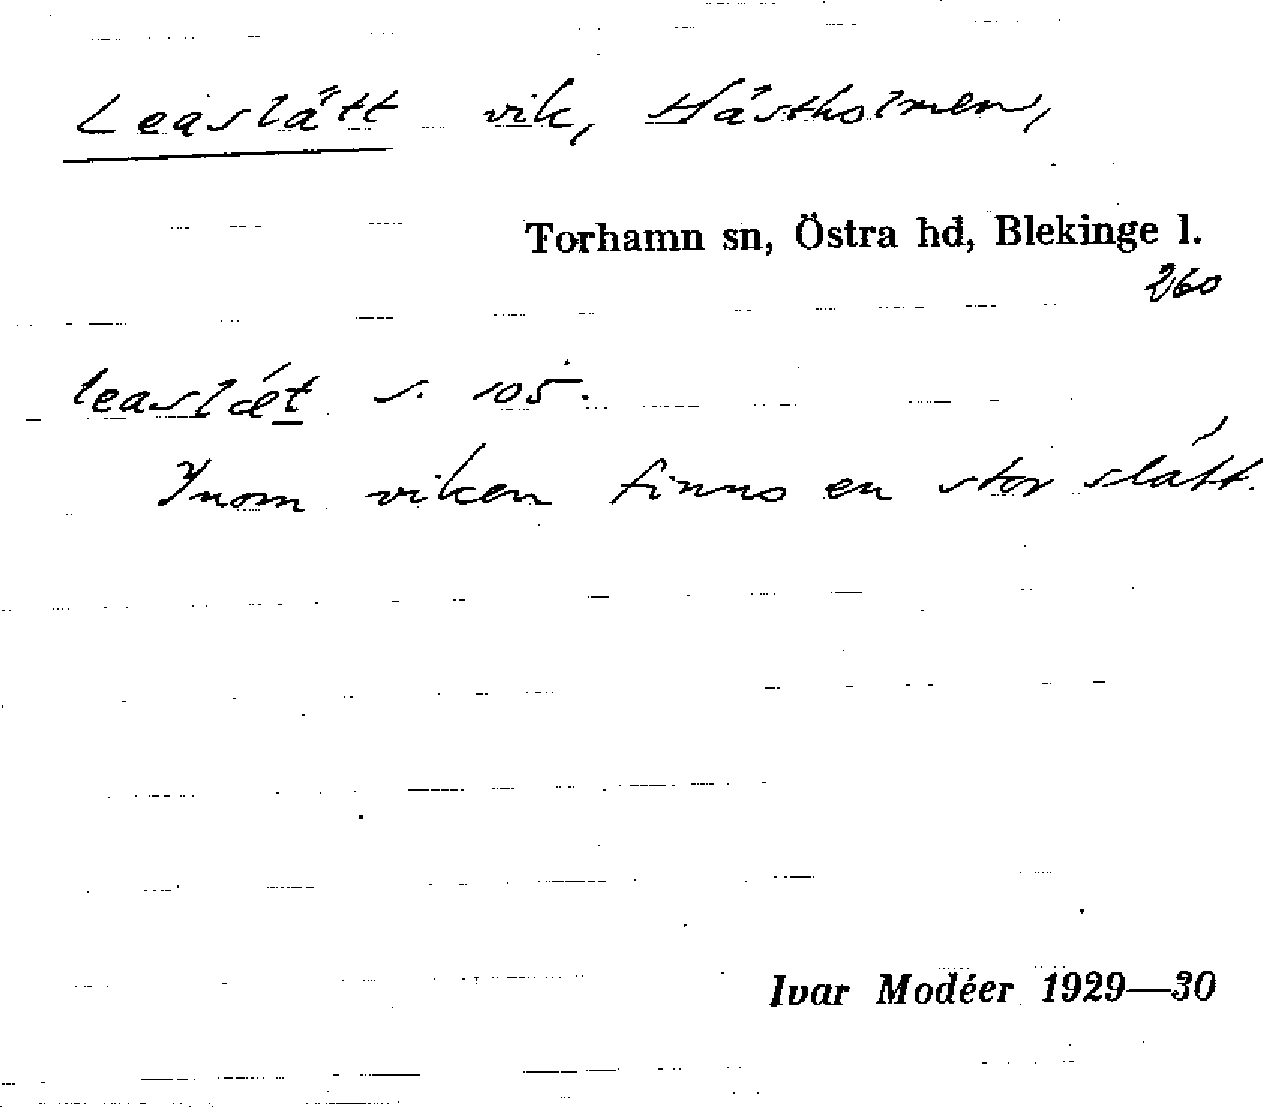 Leaslätt vik, Hästholmen,
Torhamn sn, Östra hd, Blekinge l.
260
leaslǽt s. 105.
Inom viken finns en stor slätt.
Ivar Modéer 1929—30